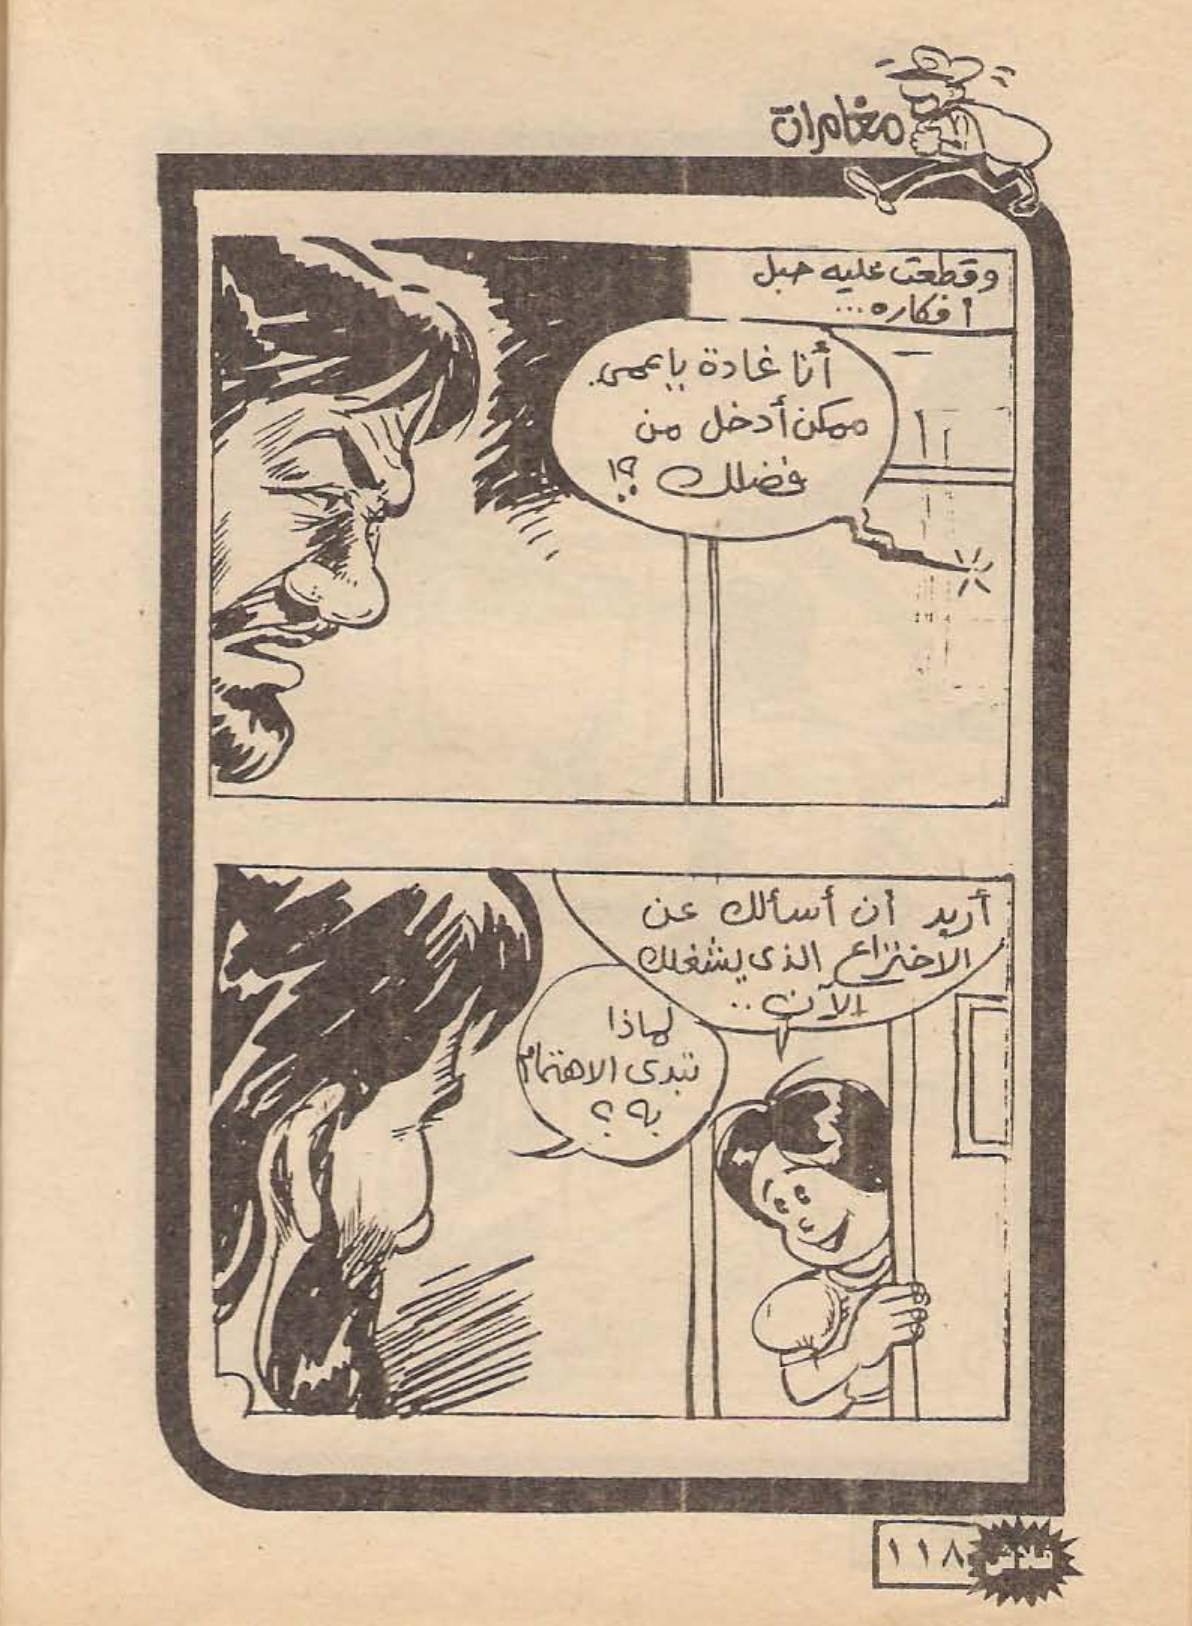 مغامرات
وقطعت عليه حبل
أفكاره...
أنا غادة يا عمى.
ممكن أدخل من
فضلك ؟!
أريد أن أسألك عن
الاختراع الذى يشغلك
الآن..
لماذا
تبدى الاهتمام
به ؟
فلاش
١١٨